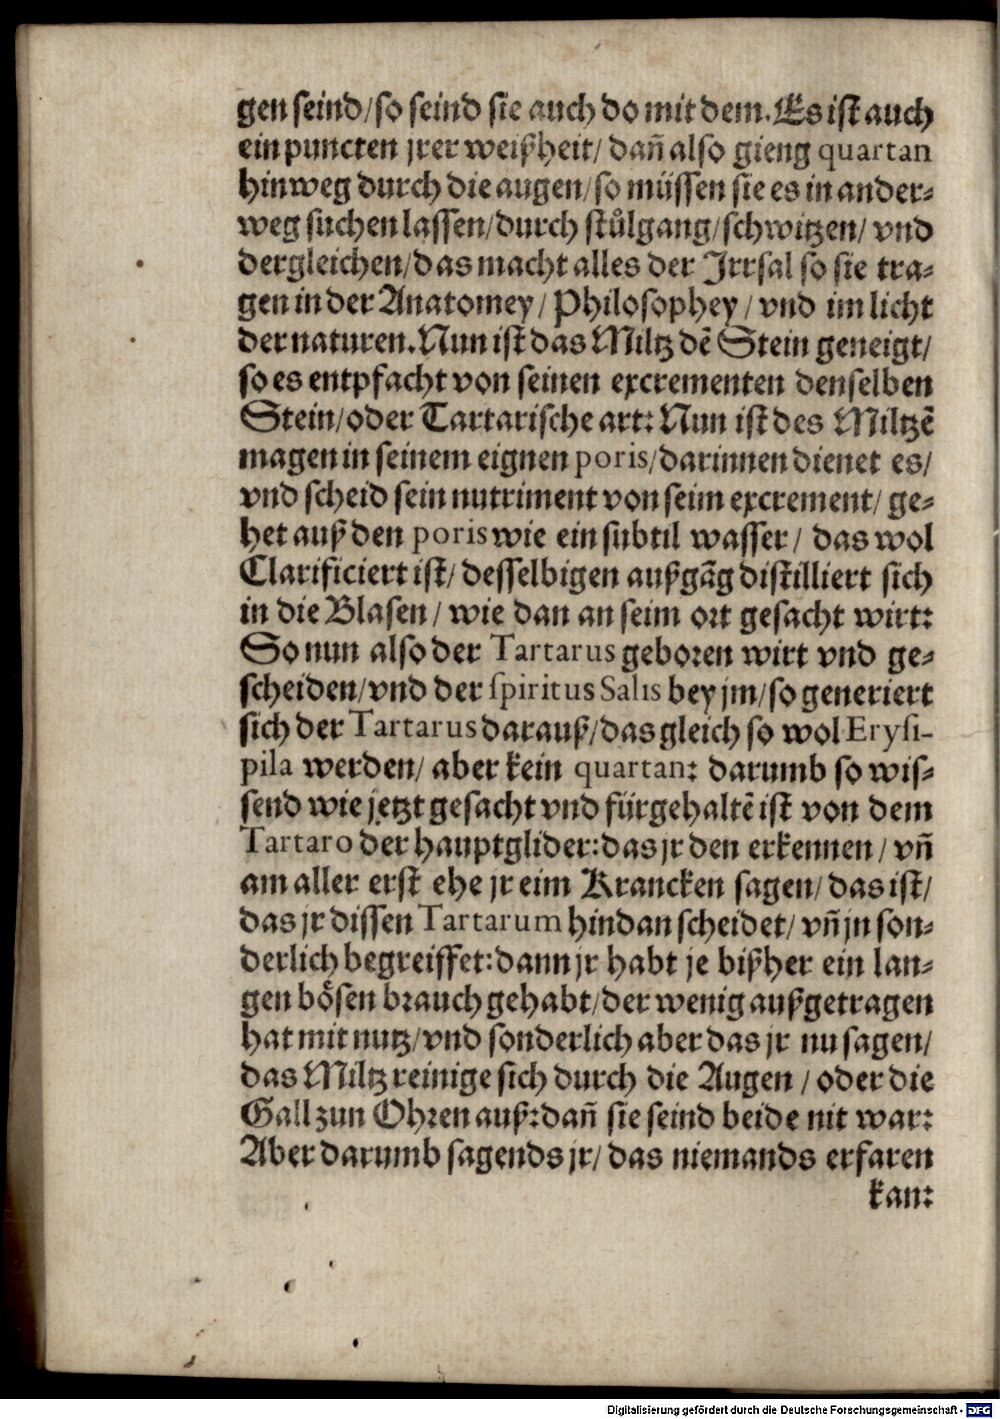 gen seind/so seind sie auch do mit dem. Es ist auch
ein puncten jrer weißheit/ dañ also gieng quartan
hinweg durch die augen/so müssen sie es in ander⸗
weg suchen lassen/durch stůlgang/schwitzen/ vnd
dergleichen/das macht alles der Irrsal so sie tra⸗
gen in der Anatomey/ Philosophey/ vnd im licht
der naturen. Nun ist das Miltz dẽ Stein geneigt/
so es entpfacht von seinen excrementen denselben
Stein/oder Tartarische art: Nun ist des Miltzẽ
magen in seinem eignen poris/darinnen dienet es/
vnd scheid sein nutriment von seim excrement/ ge⸗
het auß den poris wie ein subtil wasser/ das wol
Clarificiert ist/ desselbigen außgãg distilliert sich
in die Blasen/ wie dan an seim ort gesacht wirt:
So nun also der Tartarus geboren wirt vnd ge⸗
scheiden/vnd der spiritus Salis bey jm/so generiert
sich der Tartarus darauß/das gleich so wol Erysi-
pila werden/ aber kein quartan: darumb so wis⸗
send wie jetzt gesacht vnd fürgehaltẽ ist von dem
Tartaro der hauptglider: das jr den erkennen/ vñ
am aller erst ehe jr eim Krancken sagen/ das ist/
das jr dissen Tartarum hindan scheidet/ vñ jn son⸗
derlich begreiffet: dann jr habt je bißher ein lan⸗
gen bösen brauch gehabt/der wenig außgetragen
hat mit nutz/vnd sonderlich aber das jr nu sagen/
das Miltz reinige sich durch die Augen/ oder die
Gall zun Ohren auß: dañ sie seind beide nit war:
Aber darumb sagends jr/ das niemands erfaren
kan:
Digitalisierung gefördert durch die Deutsche Forschungsgemeinschaft - DFG